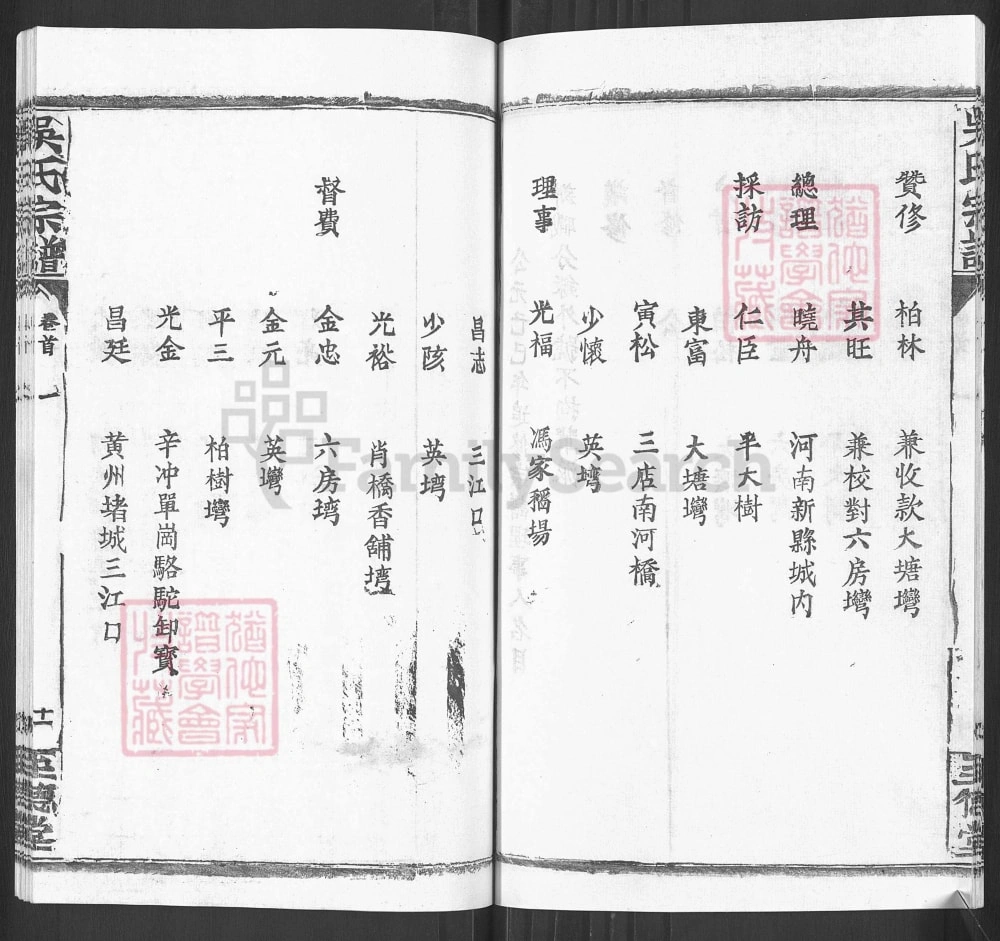 吳氏宗譜
贊修 柏林 兼收款大塘灣
其旺 兼校對六房灣
總理 曉舟 河南新縣城內
採訪 仁臣 平大樹
東富 大塘灣
寅松 三店南河橋
少懷 英塆
理事 光福 馮家稻場
昌志 三江口
少陔 英塆
光裕 肖橋香舖塆
督費 金忠 六房塆
金元 英灣
平三 柏樹灣
光金 辛冲單崗駱駝卸寳
昌廷 黃州堵城三江口
吳氏宗譜 卷首 十一 至德堂
FamilySearch